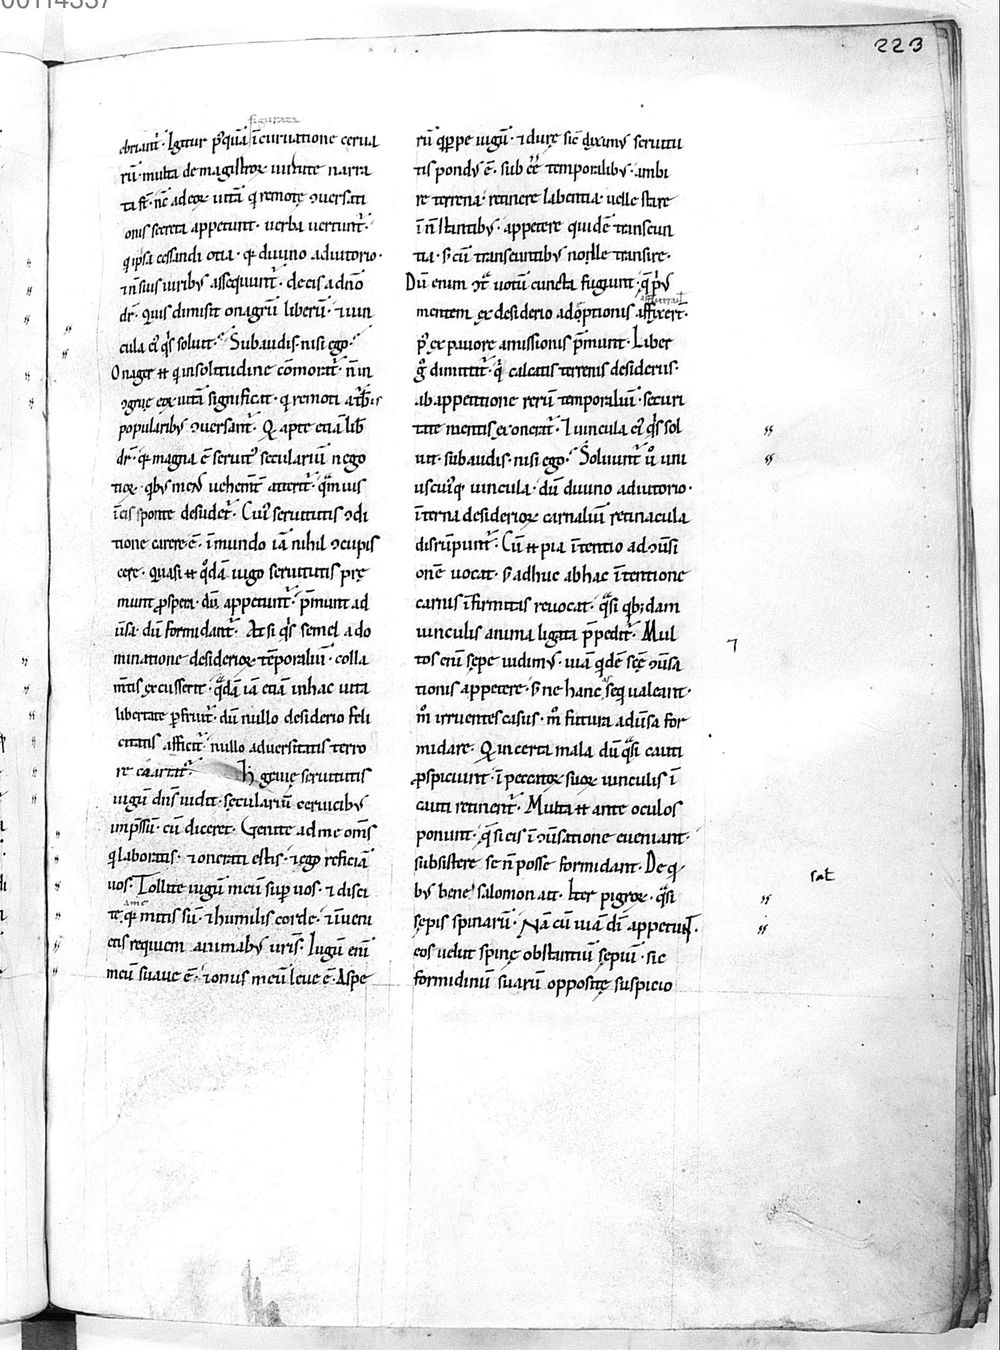 00114337
223
figurata
ebriant᷑. Igitur p̕quā īcuruatione cerua
rū. multa de magistroꝝ uirtute narra
ta sꝉ. nc̄ ad eoꝝ uitā q remotę ꝯuersati
onis secreta appetunt. uerba uertunt᷑.
q ipsa cessandi otia. qꝛ diuino adiutorio.
⁊ n̄ suis uiribꝰ assequunt᷑. de eis a dn̄o
dr̄. Quis dimisit onagrū liberū. ⁊ uin
cula ei᷒ qͥs soluit. Subaudis. nisi ego.
Onager ꝗ q in solitudine cōmorat᷑. n̄ in
ꝯgrue eoꝝ uitā significat. q remoti a turbis
popularibꝰ ꝯuersant᷑. Q apte etiā lib̄
dr̄. qꝛ magna ē seruit᷒ seculariū nego
tioꝝ. qbꝰ mens uehemt̄ atterit᷑. qͣmuis
ī eis sponte desudet᷑. Cui᷒ seruitutis ꝯdi
tione carere ē. ī mundo iā nihil ꝯcupis
cere. Quasi ꝗ qͦdā iugo seruitutis pre
munt ꝓspera. dū appetunt᷑. p̄munt ad
ūsa. dū formidant᷑. At si qͥs semel a do
minatione desiderioꝝ tēporaliū. colla
mentis excusserit. qͣdā iā etiā in hac uita
libertate ꝑfruit᷑. dū nullo desiderio feli
citatis afficit᷑. nullo aduersitatis terro
re coartat᷑. H graue seruitutis
iugū dn̄s uidit. seculariū ceruicibꝰ
imp̄ssū. cū diceret. Uenite ad me om̄s
q laboratis. ⁊ onerati estis. ⁊ ego reficiā
uos. Tollite iugū meū suꝑ uos. ⁊ disci
a me
te. qꝛ mitis sū. ⁊ humilis corde. ⁊ īueni
etis requiem animabꝰ uris. Iugū eni
meū suaue ē. ⁊ onus meū leue ē. Aspe
rū qͥppe iugū. ⁊ durę sic̄ diximꝰ seruitu
tis pondꝰ ē. sub ēē temporalibꝰ. ambi
re terrena. retinere labentia. uelle stare
ī n̄ stantibꝰ. appetere quidē transeun
tia. s̄ cū transeuntibꝰ nolle transire.
Dū enim ꝯtͣ uotū cuncta fugiunt. q p̕ꝰ
mentem ex desiderio adoptionis affixer̄t.
p̕ ex pauore amissionis p̄munt. Liber
gͦ dimittit᷑. qͥ calcatis terrenis desideriis.
ab appetitione rerū temporaliū. securi
tate mentis exonerat᷑. Et uincula ei᷒ qͥs sol
uit. subaudis. nisi ego. Soluunt᷑ uͦ uni
uscui᷒q uincula. dū diuino adiutorio.
īterna desiderioꝝ carnaliū retinacula
disrūpunt᷑. Cū ꝗ pia ītentio ad ꝯūsi
onē uocat. s̄ adhuc ab hac ītentione
carnis īfirmitas reuocat. qͣsi qbꝫdam
uinculis anima ligata p̄pedit᷑. Mul
tos enī sępe uidimꝰ. uiā qͥdē scę̄ ꝯūsa
tionis appetere. s̄ ne hanc assequi ualeant.
m̊ irruentes casus. m̊ futura adūsa for
midare. Q incerta mala dū qͣsi cauti
ꝓspiciunt. ī peccatoꝝ suoꝝ uinculis ī
cauti retinent᷑. Multa ꝗ ante oculos
ponunt. q si eis ī ꝯūsatione eueniant.
subsistere se n̄ posse formidant. De q
bꝰ bene salomon ait. Iter pigroꝝ. qͣsi
sat
sępis spinarū. Nā cū uiā dī appetunt.
eos uelut spinę obstantiū sępiū. sic
formidinū suarū oppositę suspicio